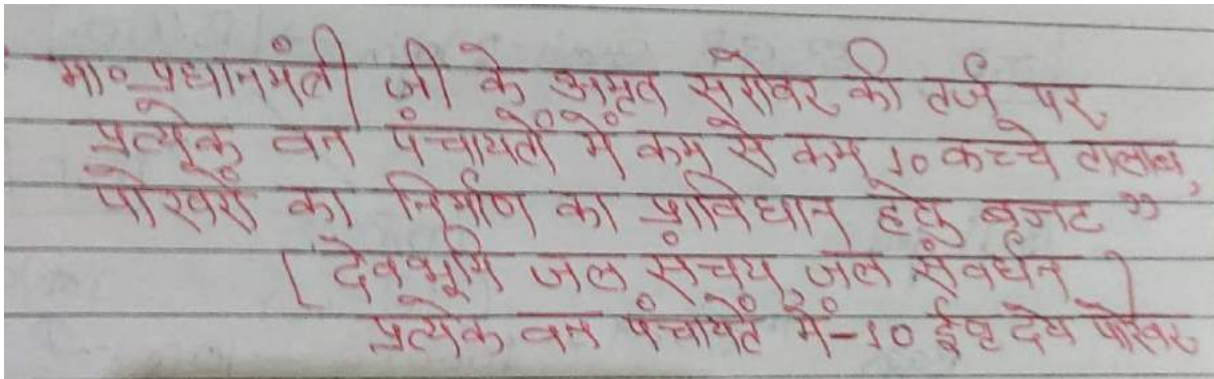 मा० प्रधानमंत्री जी के अमृत सरोवर की तर्ज पर
प्रत्येक वन पंचायतों में कम से कम 10 कच्चे तालाब,
पोखरों का निर्माण का प्राविधान हेतु बजट ”
[ देवभूमि जल संचय, जल संवर्धन ]
प्रत्येक वन पंचायतें में-10 ईष्ट देव पोखर